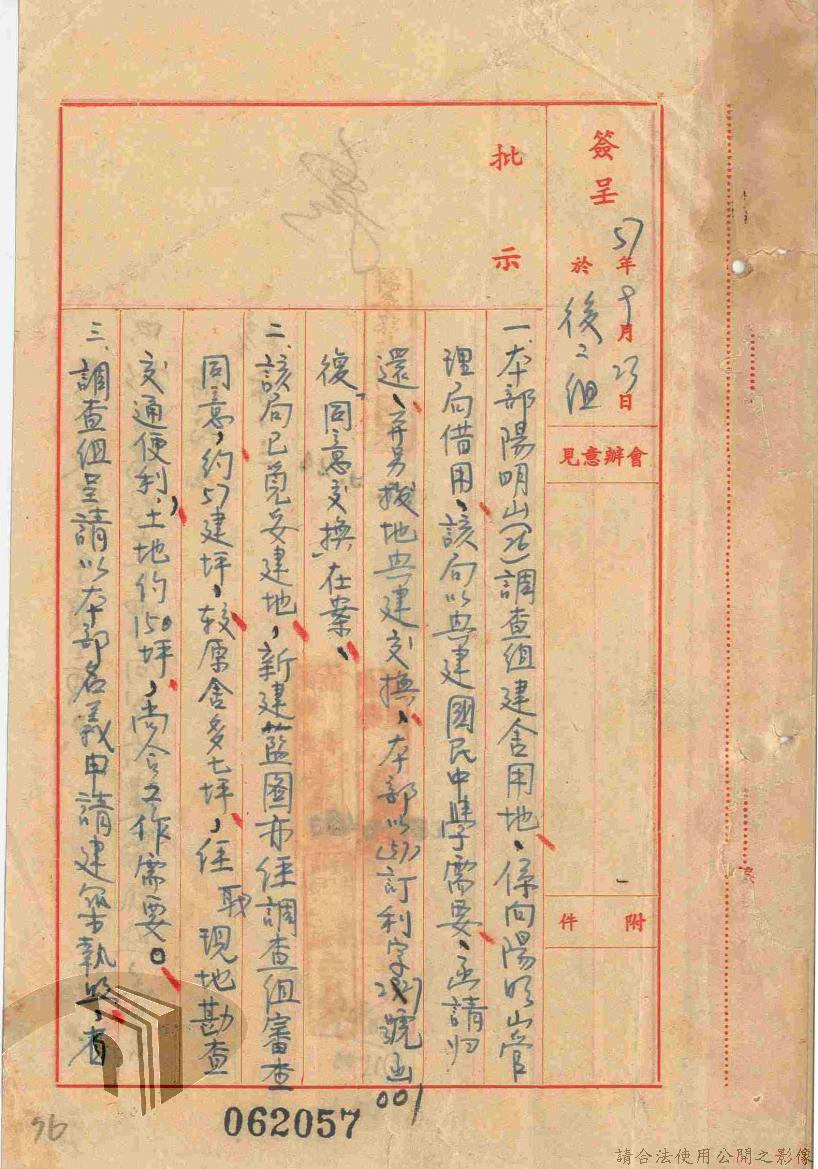 簽呈
57年9月23日
於後二組
會辦意見
附件
批示
一、本部陽明山(26)調查組建舍用地、係向陽明山管
理局借用、該局以興建國民中學需要、函請归
還、并另撥地興建交換、本部以(57)訂利字號函001
復「同意交換」在案、
二、該局已覓妥建地,新建藍圖亦经調查组審查
同意,約57建坪,較原舍多七坪,经職現地勘查
交通便利,土地約150坪,尚合工作需要。
三、調查组呈請以本部名義申請建築執照,有
062057
96
請合法使用公開之影像